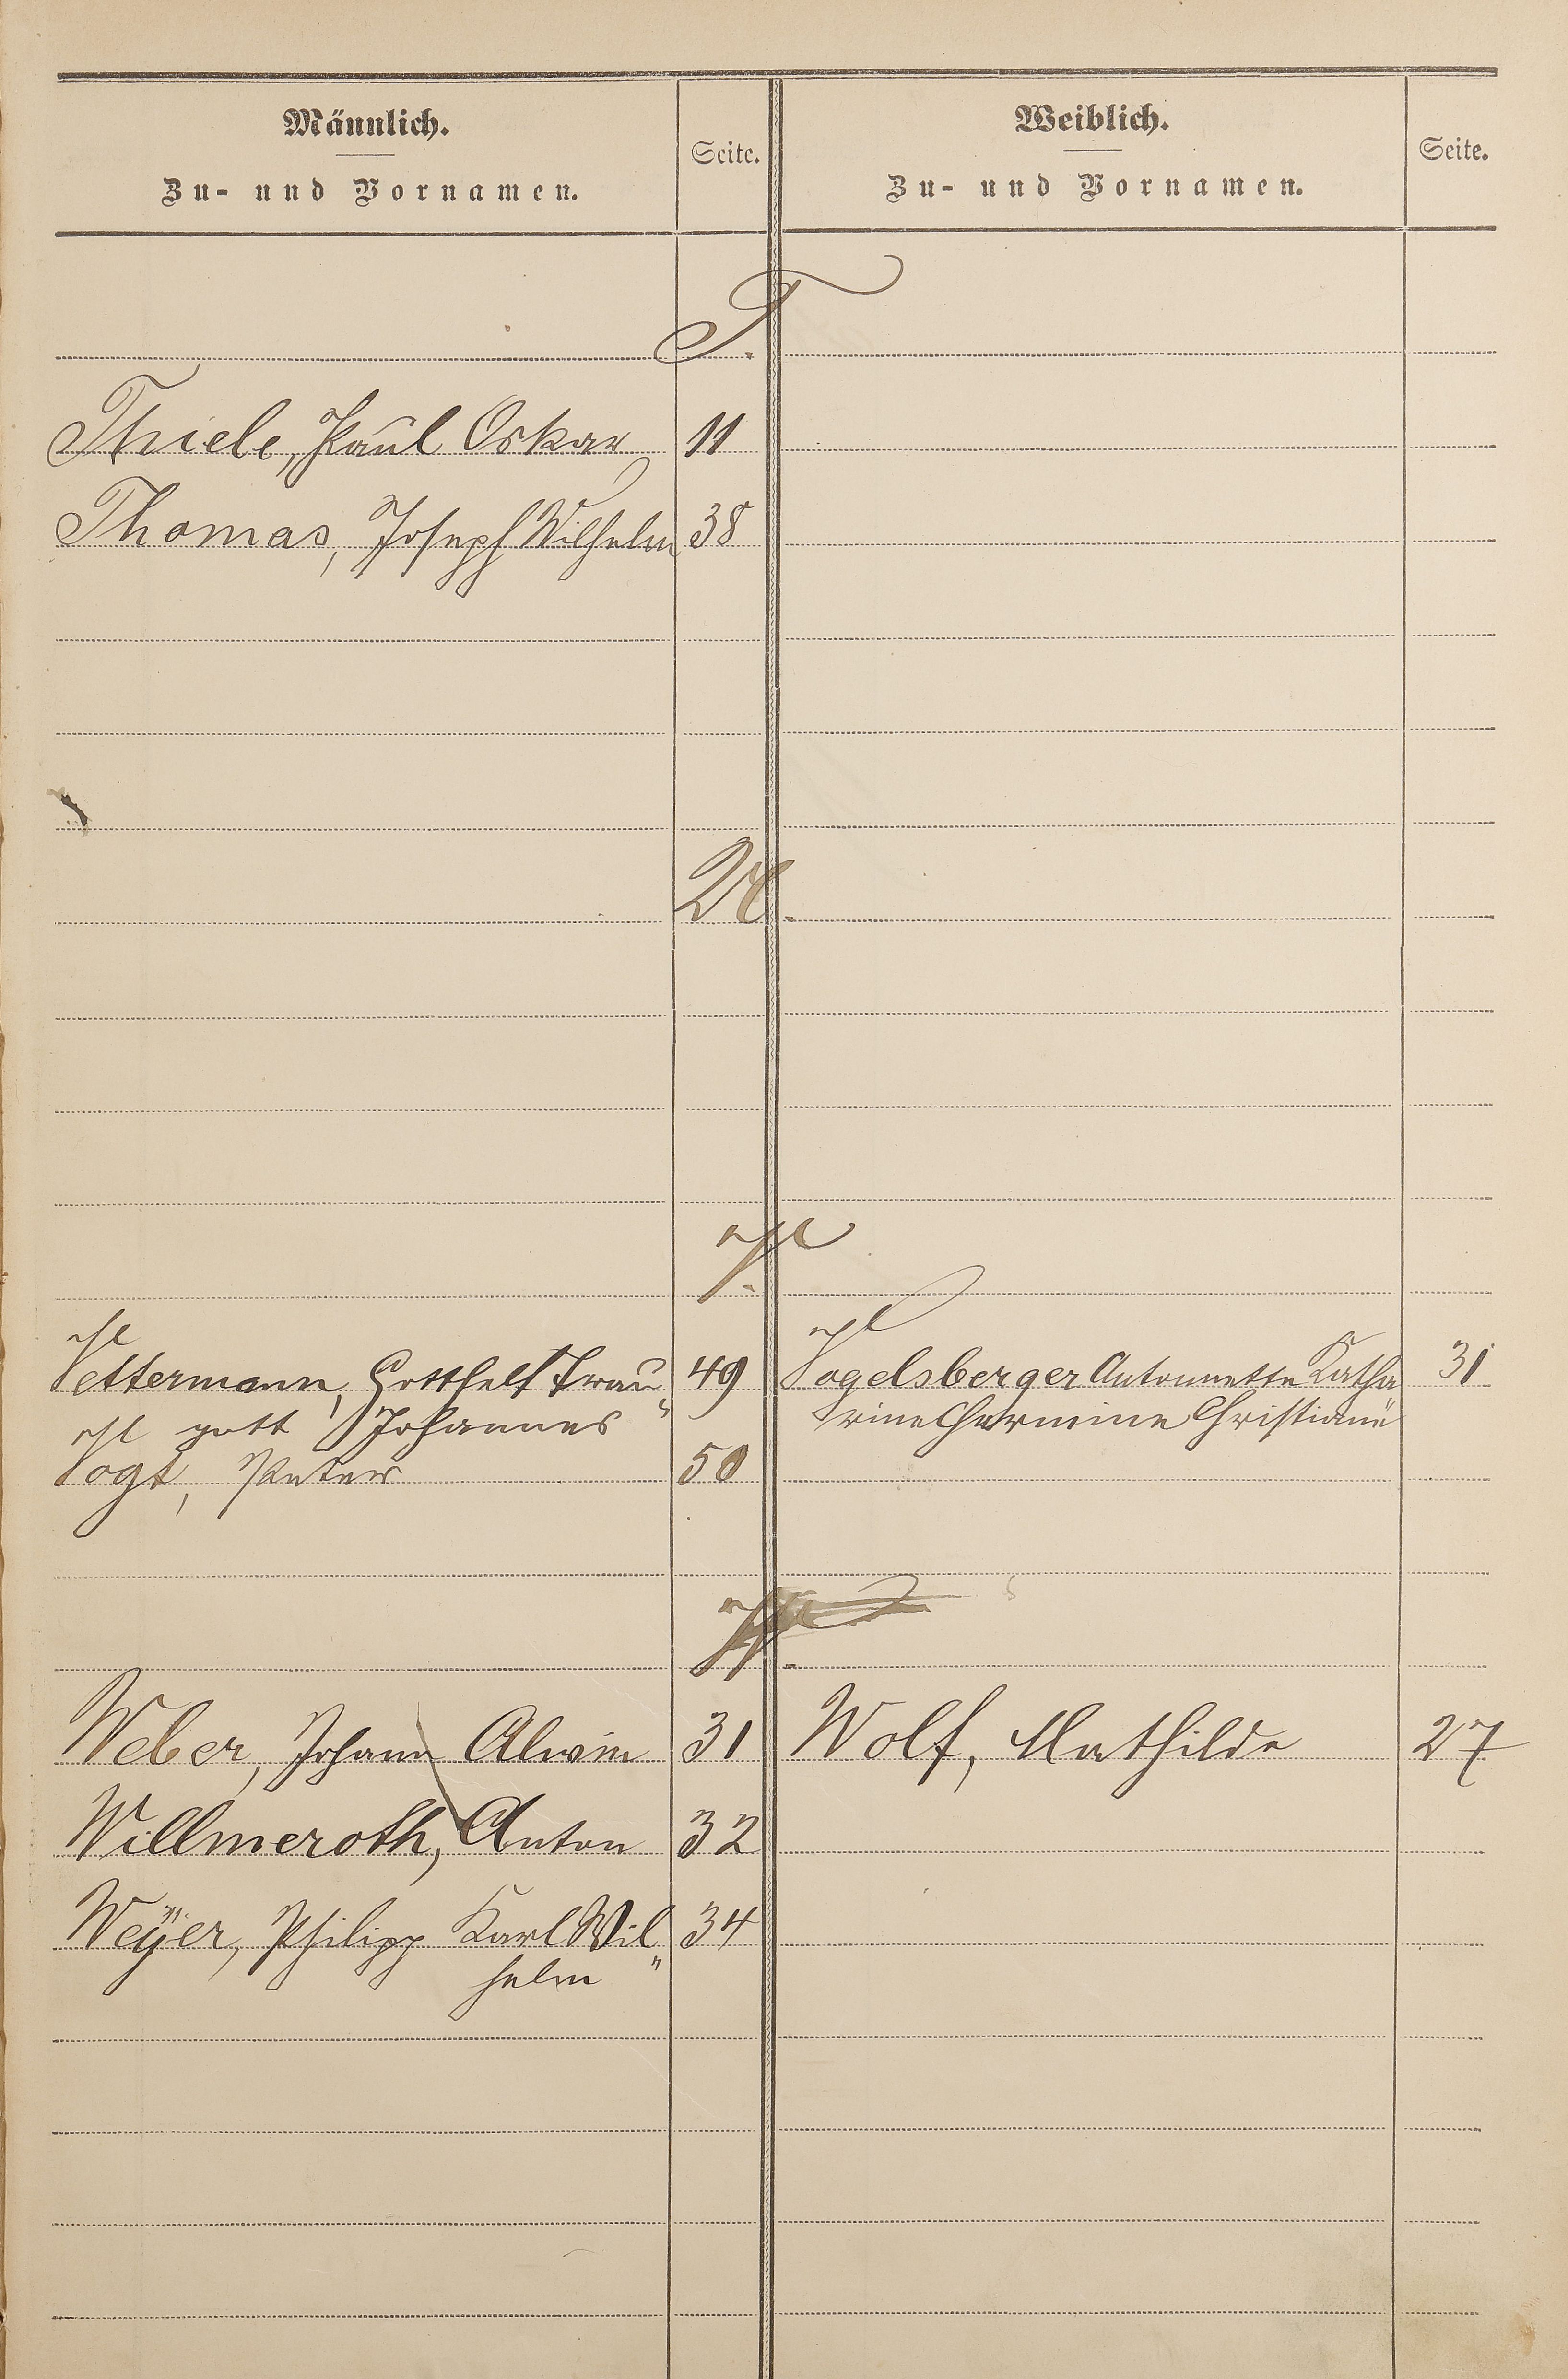 Männlich.
Zu- und Vornamen.
Seite.
Weiblich.
Zu- und Vornamen.
Seite.
T.
Thiele, Paul Oskar 11
Thomas, Joseph Wilhelm 38
U.
V.
Vettermann, Gotthelf Trau„ 49
gott Johannes
Vogt, Peter 50
Vogelsberger Antonnette Katha 31
rine Hermine Christiane
W.
Weber, Johann Alwin 31
Wolf, Mathilde 27
Willmeroth, Anton 32
Weÿer, Philipp Karl Wil„ 34
helm